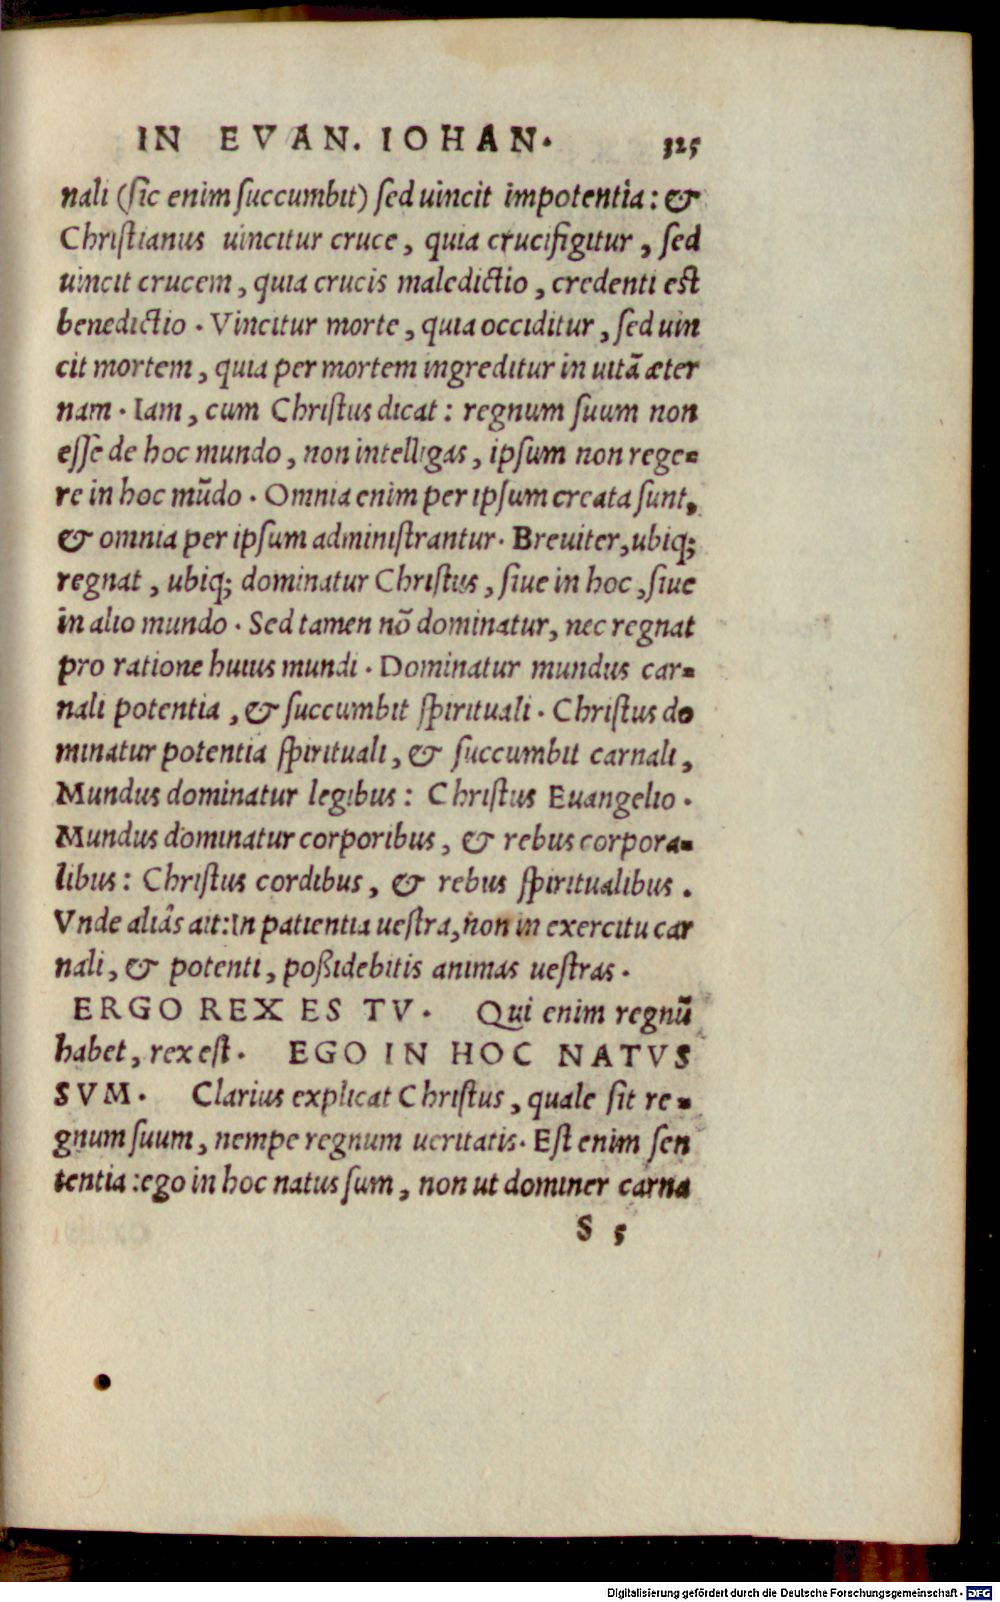 IN EVAN. IOHAN. 325
nali (sic enim succumbit) sed uincit impotentia: &
Christianus uincitur cruce, quia crucifigitur, sed
uincit crucem, quia crucis maledictio, credenti est
benedictio. Vincitur morte, quia occiditur, sed uin
cit mortem, quia per mortem ingreditur in uitã æter
nam. Iam, cum Christus dicat: regnum suum non
esse de hoc mundo, non intelligas, ipsum non rege=
re in hoc mũdo. Omnia enim per ipsum creata sunt,
& omnia per ipsum administrantur. Breuiter, ubiq;
regnat, ubiq; dominatur Christus, siue in hoc, siue
in alio mundo. Sed tamen nõ dominatur, nec regnat
pro ratione huius mundi. Dominatur mundus car=
nali potentia, & succumbit spirituali. Christus do
minatur potentia spirituali, & succumbit carnali,
Mundus dominatur legibus: Christus Euangelio.
Mundus dominatur corporibus, & rebus corpora=
libus: Christus cordibus, & rebus spiritualibus.
Vnde aliâs ait: In patientia uestra, non in exercitu car
nali, & potenti, poßidebitis animas uestras.
ERGO REX ES TV. Qui enim regnũ
habet, rex est. EGO IN HOC NATVS
SVM. Clarius explicat Christus, quale sit re=
gnum suum, nempe regnum ueritatis. Est enim sen
tentia: ego in hoc natus sum, non ut dominer carna
S 5
Digitalisierung gefördert durch die Deutsche Forschungsgemeinschaft - DFG